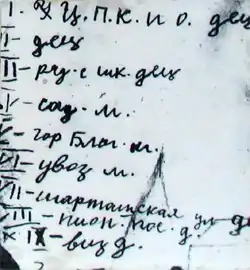 I. Я Ц. П. К. и О. дец
II - дец
III - ру. с шк. дец
IV - сад. м.
V - гор Благ. м.
VI - увоз м.
VII - шарташская
VIII - пион. пос. д.
IX - виз д.